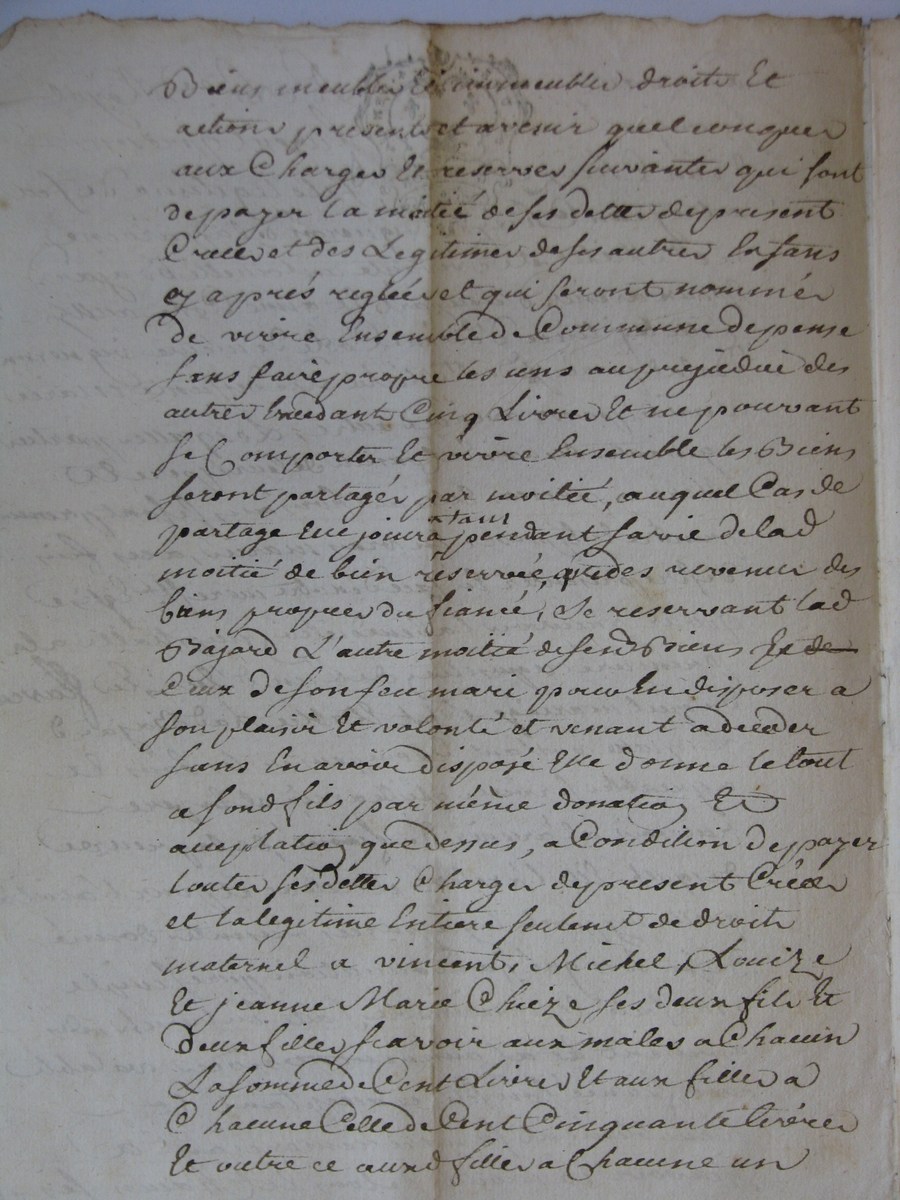 Biens meubles Et immeubles droits Et
actions presents et avenir quelconques
aux Charges Et reserves suivantes qui sont
de payer la moitié de ses dettes de present
Creées et des Legitimes de ses autres Enfans
cy aprés reglées et qui seront nommés
de vivre Ensemble de Commune depense
sans faire propre les uns au prejudice des
autres Excedant Cinq Livres Et ne pouvant
se Comporter Et vivre Ensemble les Biens
seront partagés par moitié, auquel Cas de
partage Elle jouira pendant sa vie de lad
moitié de bien réservée, des revenus des
biens propres du fiancé, Se reservant lad
Bajard L'autre moitié de sesd Biens Et de
Ceux de son feu mari pour En disposer a
son plaisir Et volonté et venant a deceder
sans En avoir disposé Elle donne le tout
a sond fils par même donation Et
acceptation que dessus, a Condition de payer
toutes ses dettes Charges de present Créées
et la legitime Entiere seulemt de droit
maternel a vincent, Michel, Louize
Et jeanne Marie Chieze ses deux fils Et
deux filles scavoir aux males a Chacun
La somme de Cent Livres Et aux filles a
Chacune Celle de Cent Cinquante livres
Et outre ce auxd filles a Chacune un